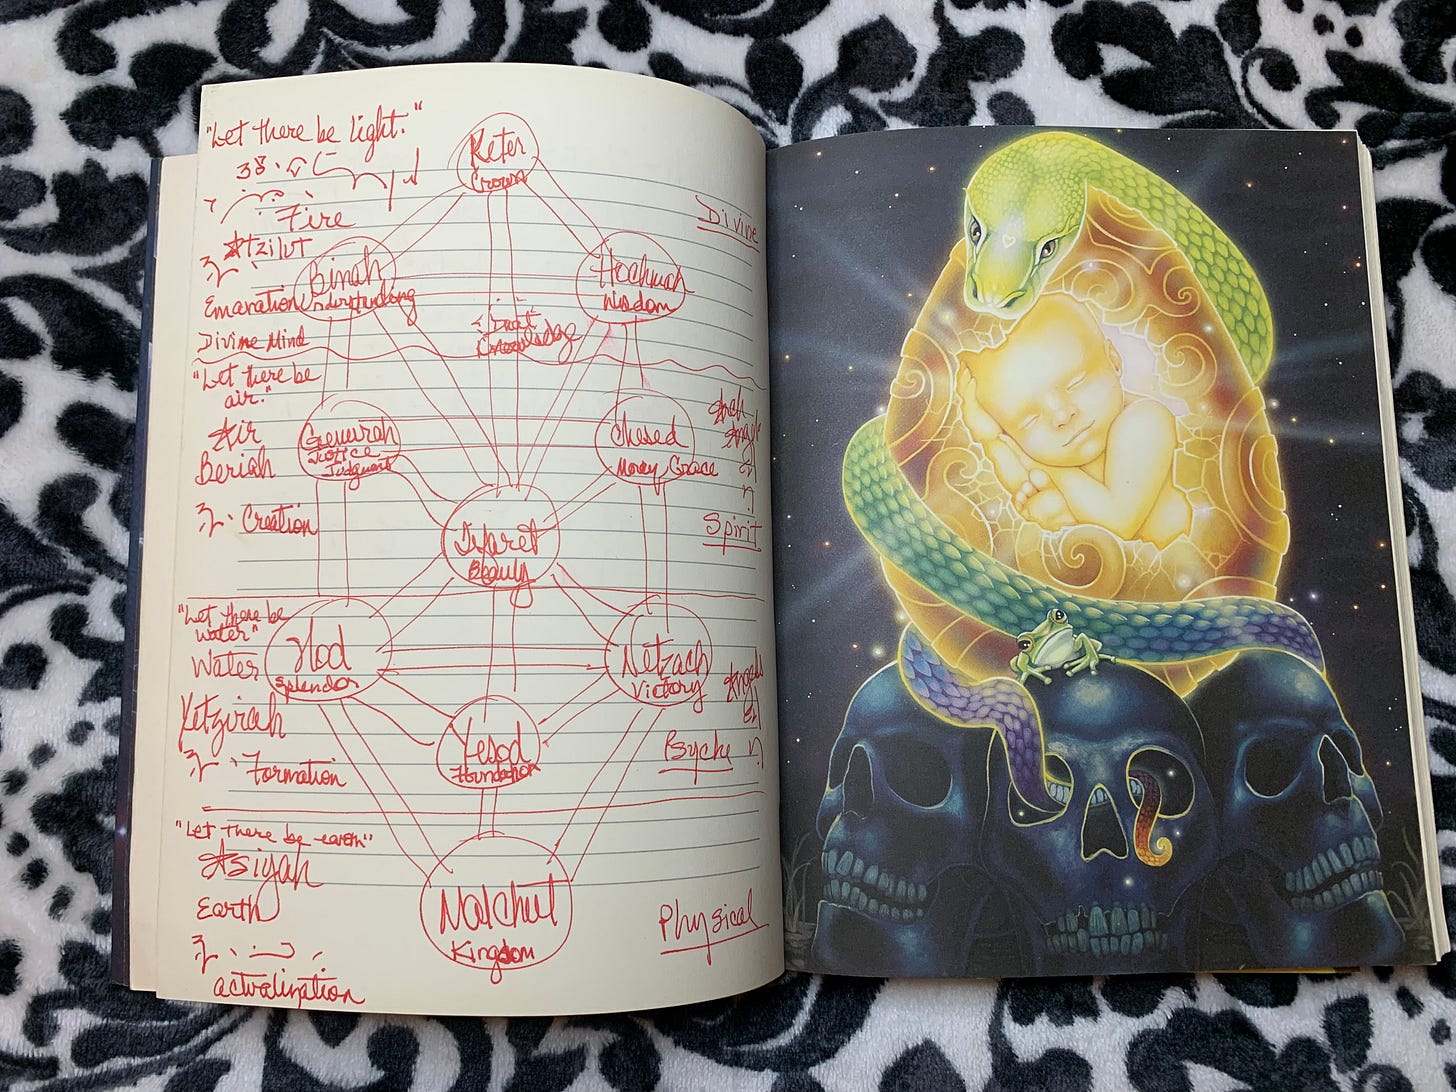 "Let there be light."
Fire
Atzilut
Emanation
Divine Mind
"Let there be
air."
Air
Beriah
Creation
"Let there be
water"
Water
Yetzirah
Formation
"Let there be earth"
Asiyah
Earth
actualization
Keter
Crown
Binah
Understanding
Hochmah
Wisdom
Knowledge
Gevurah
Justice
Judgment
Chesed
Mercy Grace
Tifaret
Beauty
Hod
Splendor
Netzach
Victory
Yesod
Foundation
Malchut
Kingdom
Divine
Arch
Angel
Spirit
Angels
Psyche
Physical